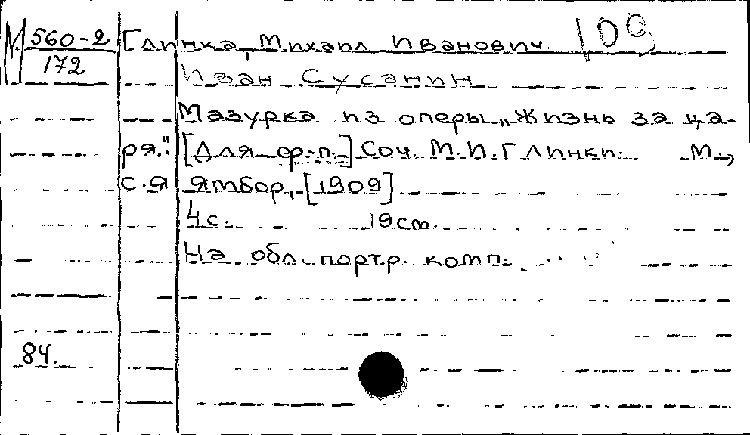 М 560-2 Глинка, Михаил Иванович. 109
172 Иван Сусанин
Мазурка из оперы „Жизнь за ца-
ря." [Для ф.-п.] Соч. М.И.Глинки. М.,
С.Я Ямбор, [1909]
4с. 19см.
На обл. портр. комп.
84.